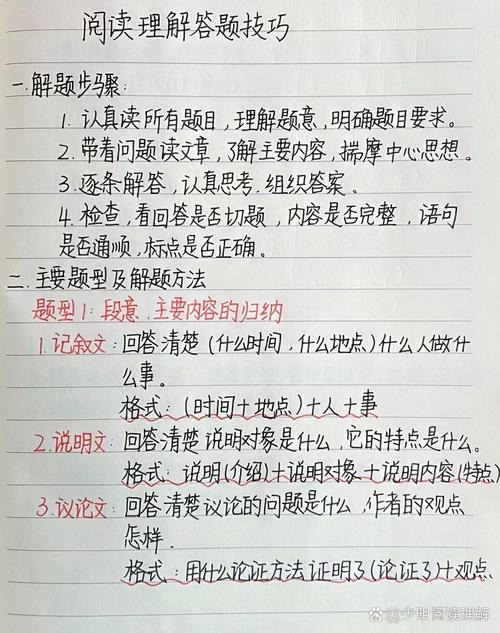 阅读理解答题技巧
一.解题步骤:
1. 认真读所有题目,理解题意,明确题目要求。
2. 带着问题读文章,了解主要内容,揣摩中心思想。
3. 逐条解答,认真思考.组织答案。
4. 检查,看回答是否切题,内容是否完整,语句
是否通顺,标点是否正确。
二.主要题型及解题方法
题型1:段意.主要内容的归纳
1.记叙文:回答清楚(什么时间,什么地点)什么人做什
么事。
格式:(时间+地点)+人+事
2.说明文:回答清楚说明对象是什么,它的特点是什么。
格式:说明(介绍)+说明对象+说明内容(特点)
3.议论文:回答清楚议论的问题是什么,作者的观点
怎样.
格式:用什么论证方法证明了(论证了)+观点
@少明阅读理解